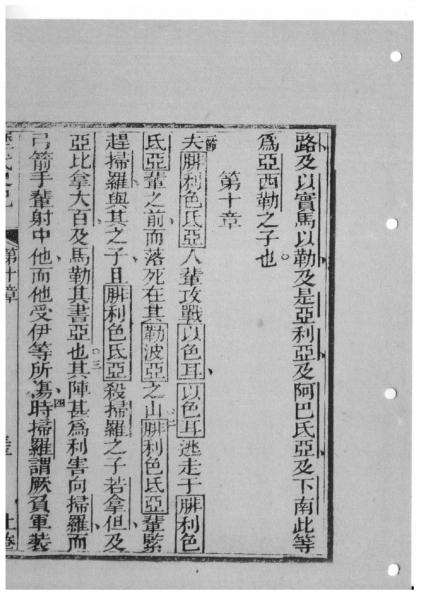 路及以實馬以勒及是亞利亞及阿巴氐亞及下南此等
為亞西勒之子也
第十章
節夫腓利色氐亞人輩攻戰以色耳以色耳逃走于腓利色
氐亞輩之前而落死在其勒波亞之山二腓利色氐亞輩緊
趕掃羅與其之子且腓利色氐亞殺掃羅之子若拿但及
亞比拿大百及馬勒其書亞也三其陣甚為利害向掃羅而
弓箭手輩射中他而他受伊等所傷四時掃羅謂厥負軍裝
第十章